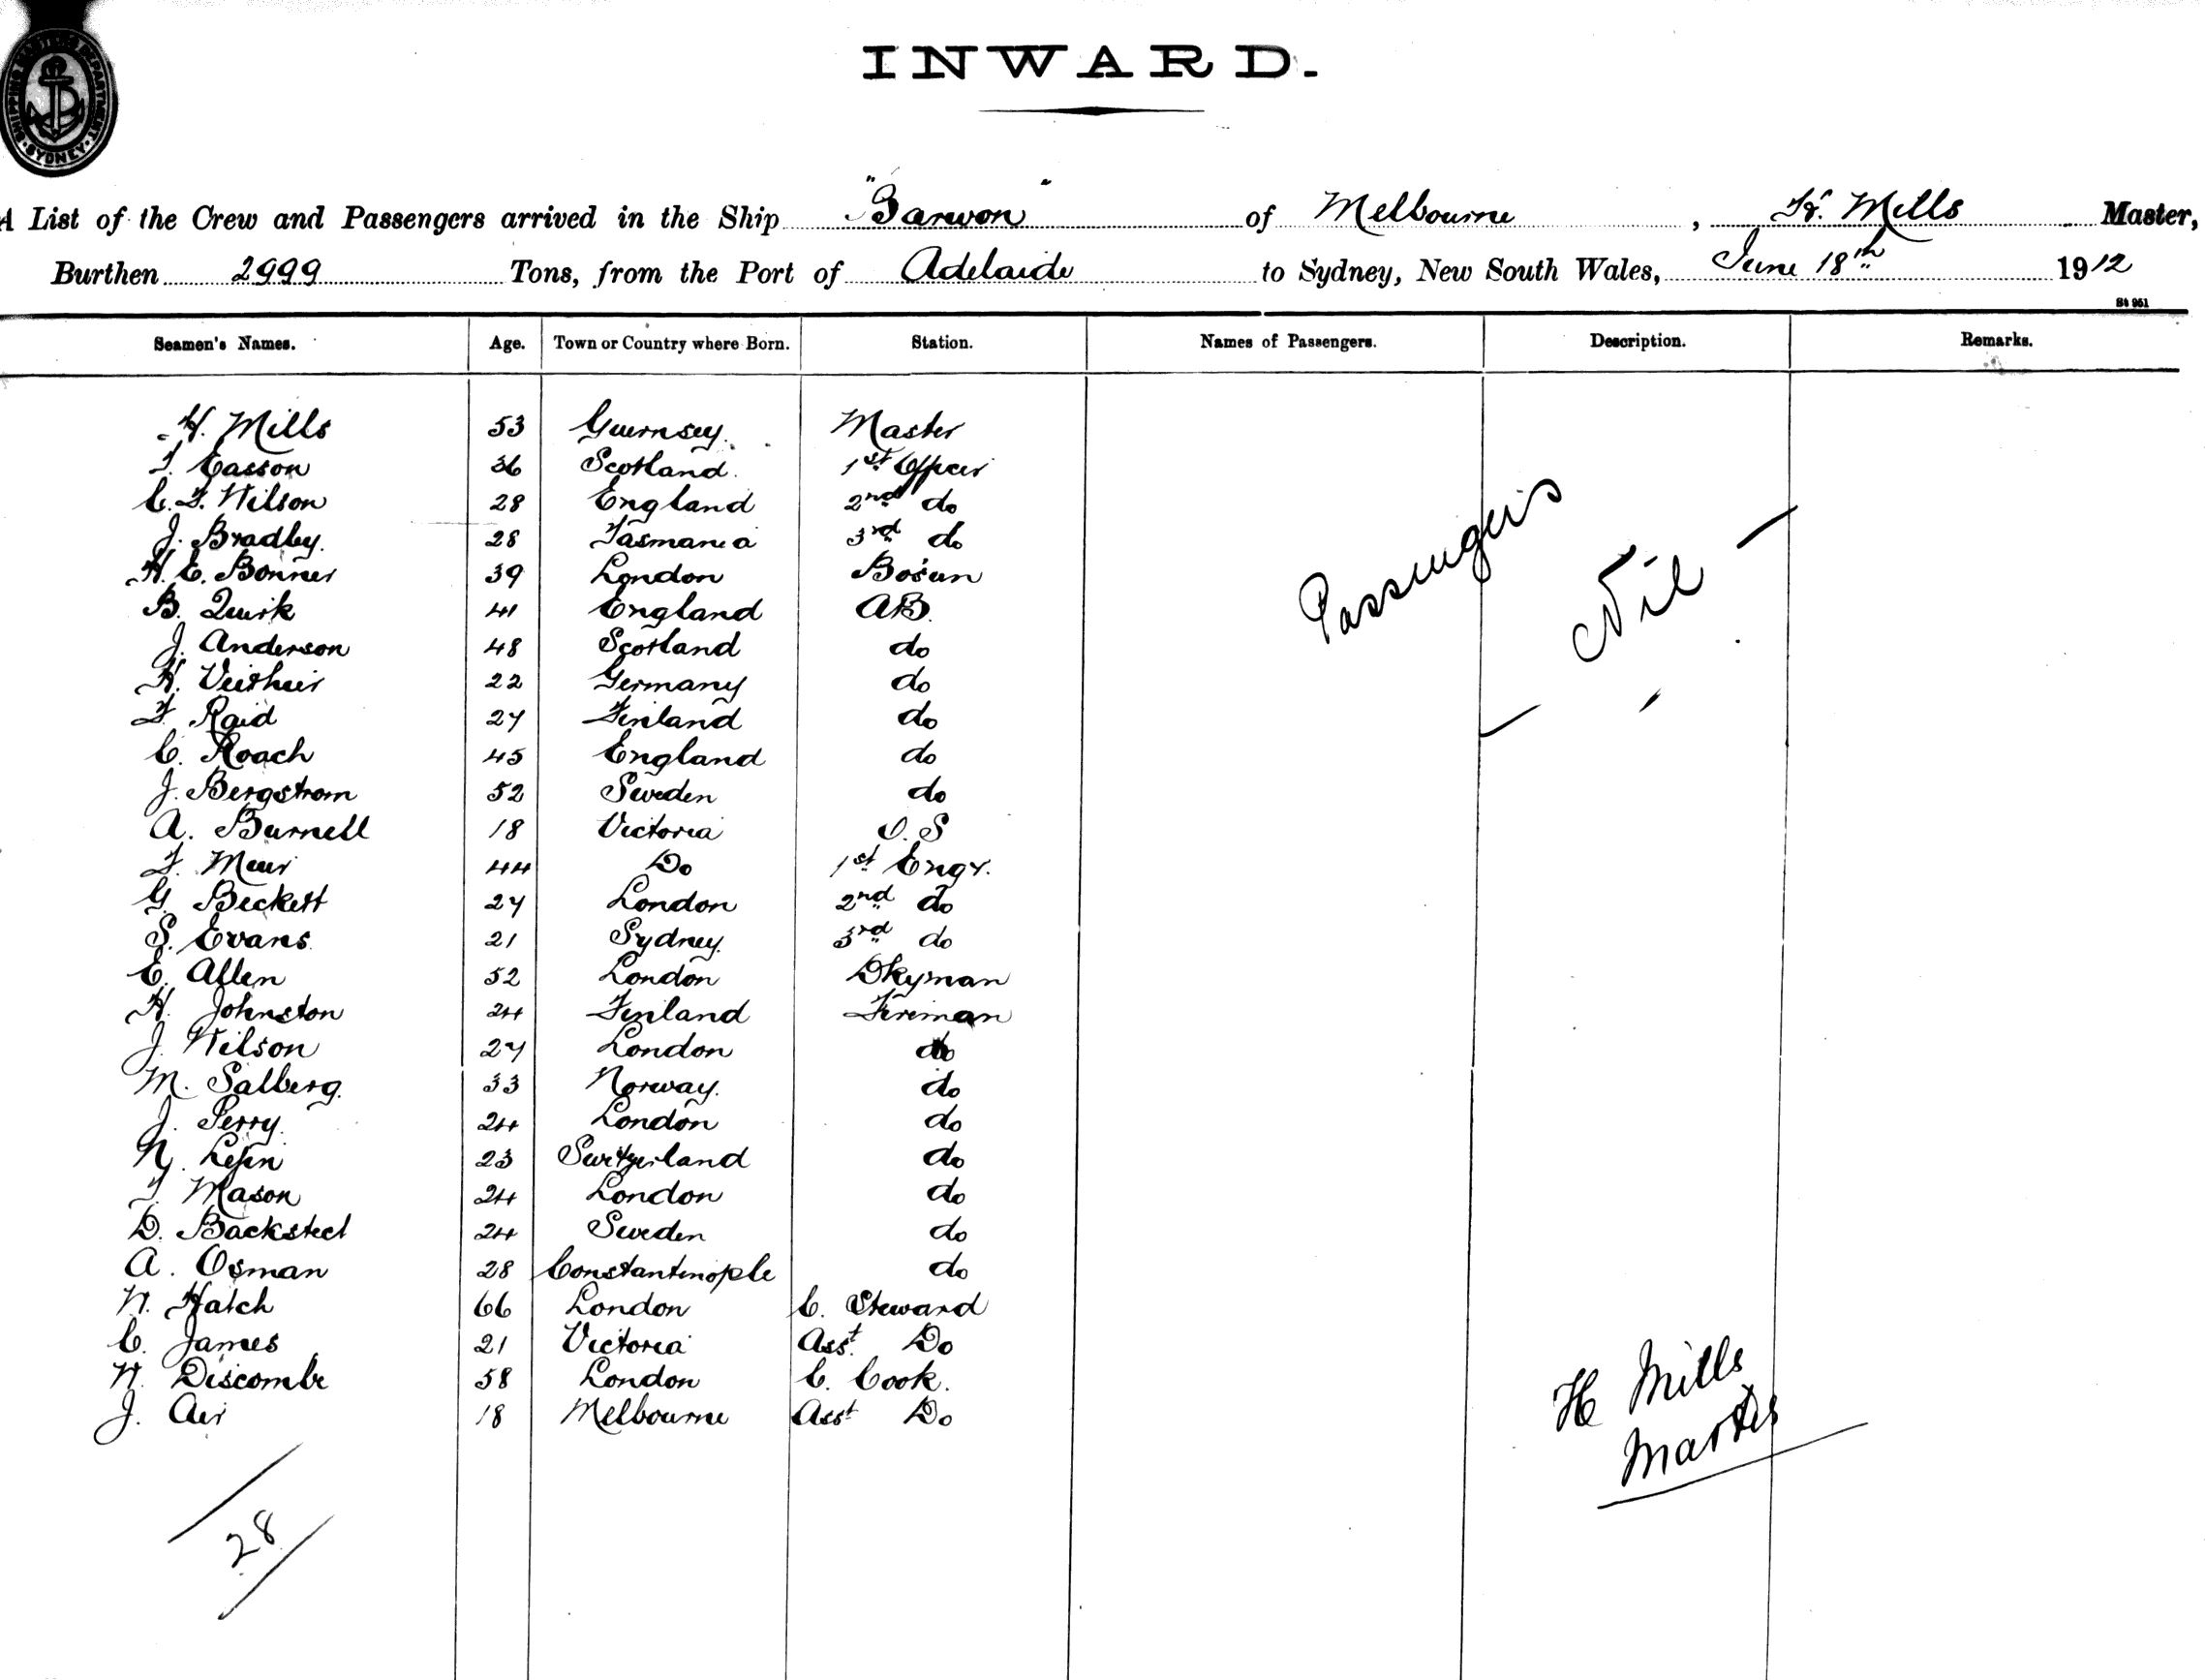 SHIPPING MASTERS DEPARTMENT SYDNEY
INWARD.
A List of the Crew and Passengers arrived in the Ship "Barwon" of Melbourne, H. Mills Master,
Burthen 2999 Tons, from the Port of Adelaide to Sydney, New South Wales, June 18th 1912
St 951
Seamen's Names. Age. Town or Country where Born. Station. Names of Passengers. Description. Remarks.
H. Mills 53 Guernsey. Master
T. Easson 36 Scotland. 1st Officer
C. F. Wilson 28 England 2nd do
J. Bradley. 28 Tasmania 3rd do
H. E. Bonner 39 London Bo'sun
B. Quirk 41 England AB.
J. Anderson 48 Scotland do
H. 22 Germany do
F. Raid 27 Finland do
C. Roach 45 England do
J. Bergstrom 52 Sweden do
A. Burnell 18 Victoria O.S
F. Muir 44 Do 1st Engr.
G. Beckett 27 London 2nd do
S. Evans. 21 Sydney. 3rd do
E. Allen 52 London Dkyman
H. Johnston 24 Finland Fireman
J. Wilson 27 London do
M. Salberg. 33 Norway. do
J. Perry. 24 London do
N. 23 Switzerland do
T. Mason 24 London do
D. 24 Sweden do
A. Osman 28 Constantinople do
W. Hatch 66 London C. Steward
C. James 21 Victoria Asst. Do
W. Discombe 58 London C. Cook.
J. Air 18 Melbourne Asst Do
28
Passengers
— Nil —
H Mills
Master